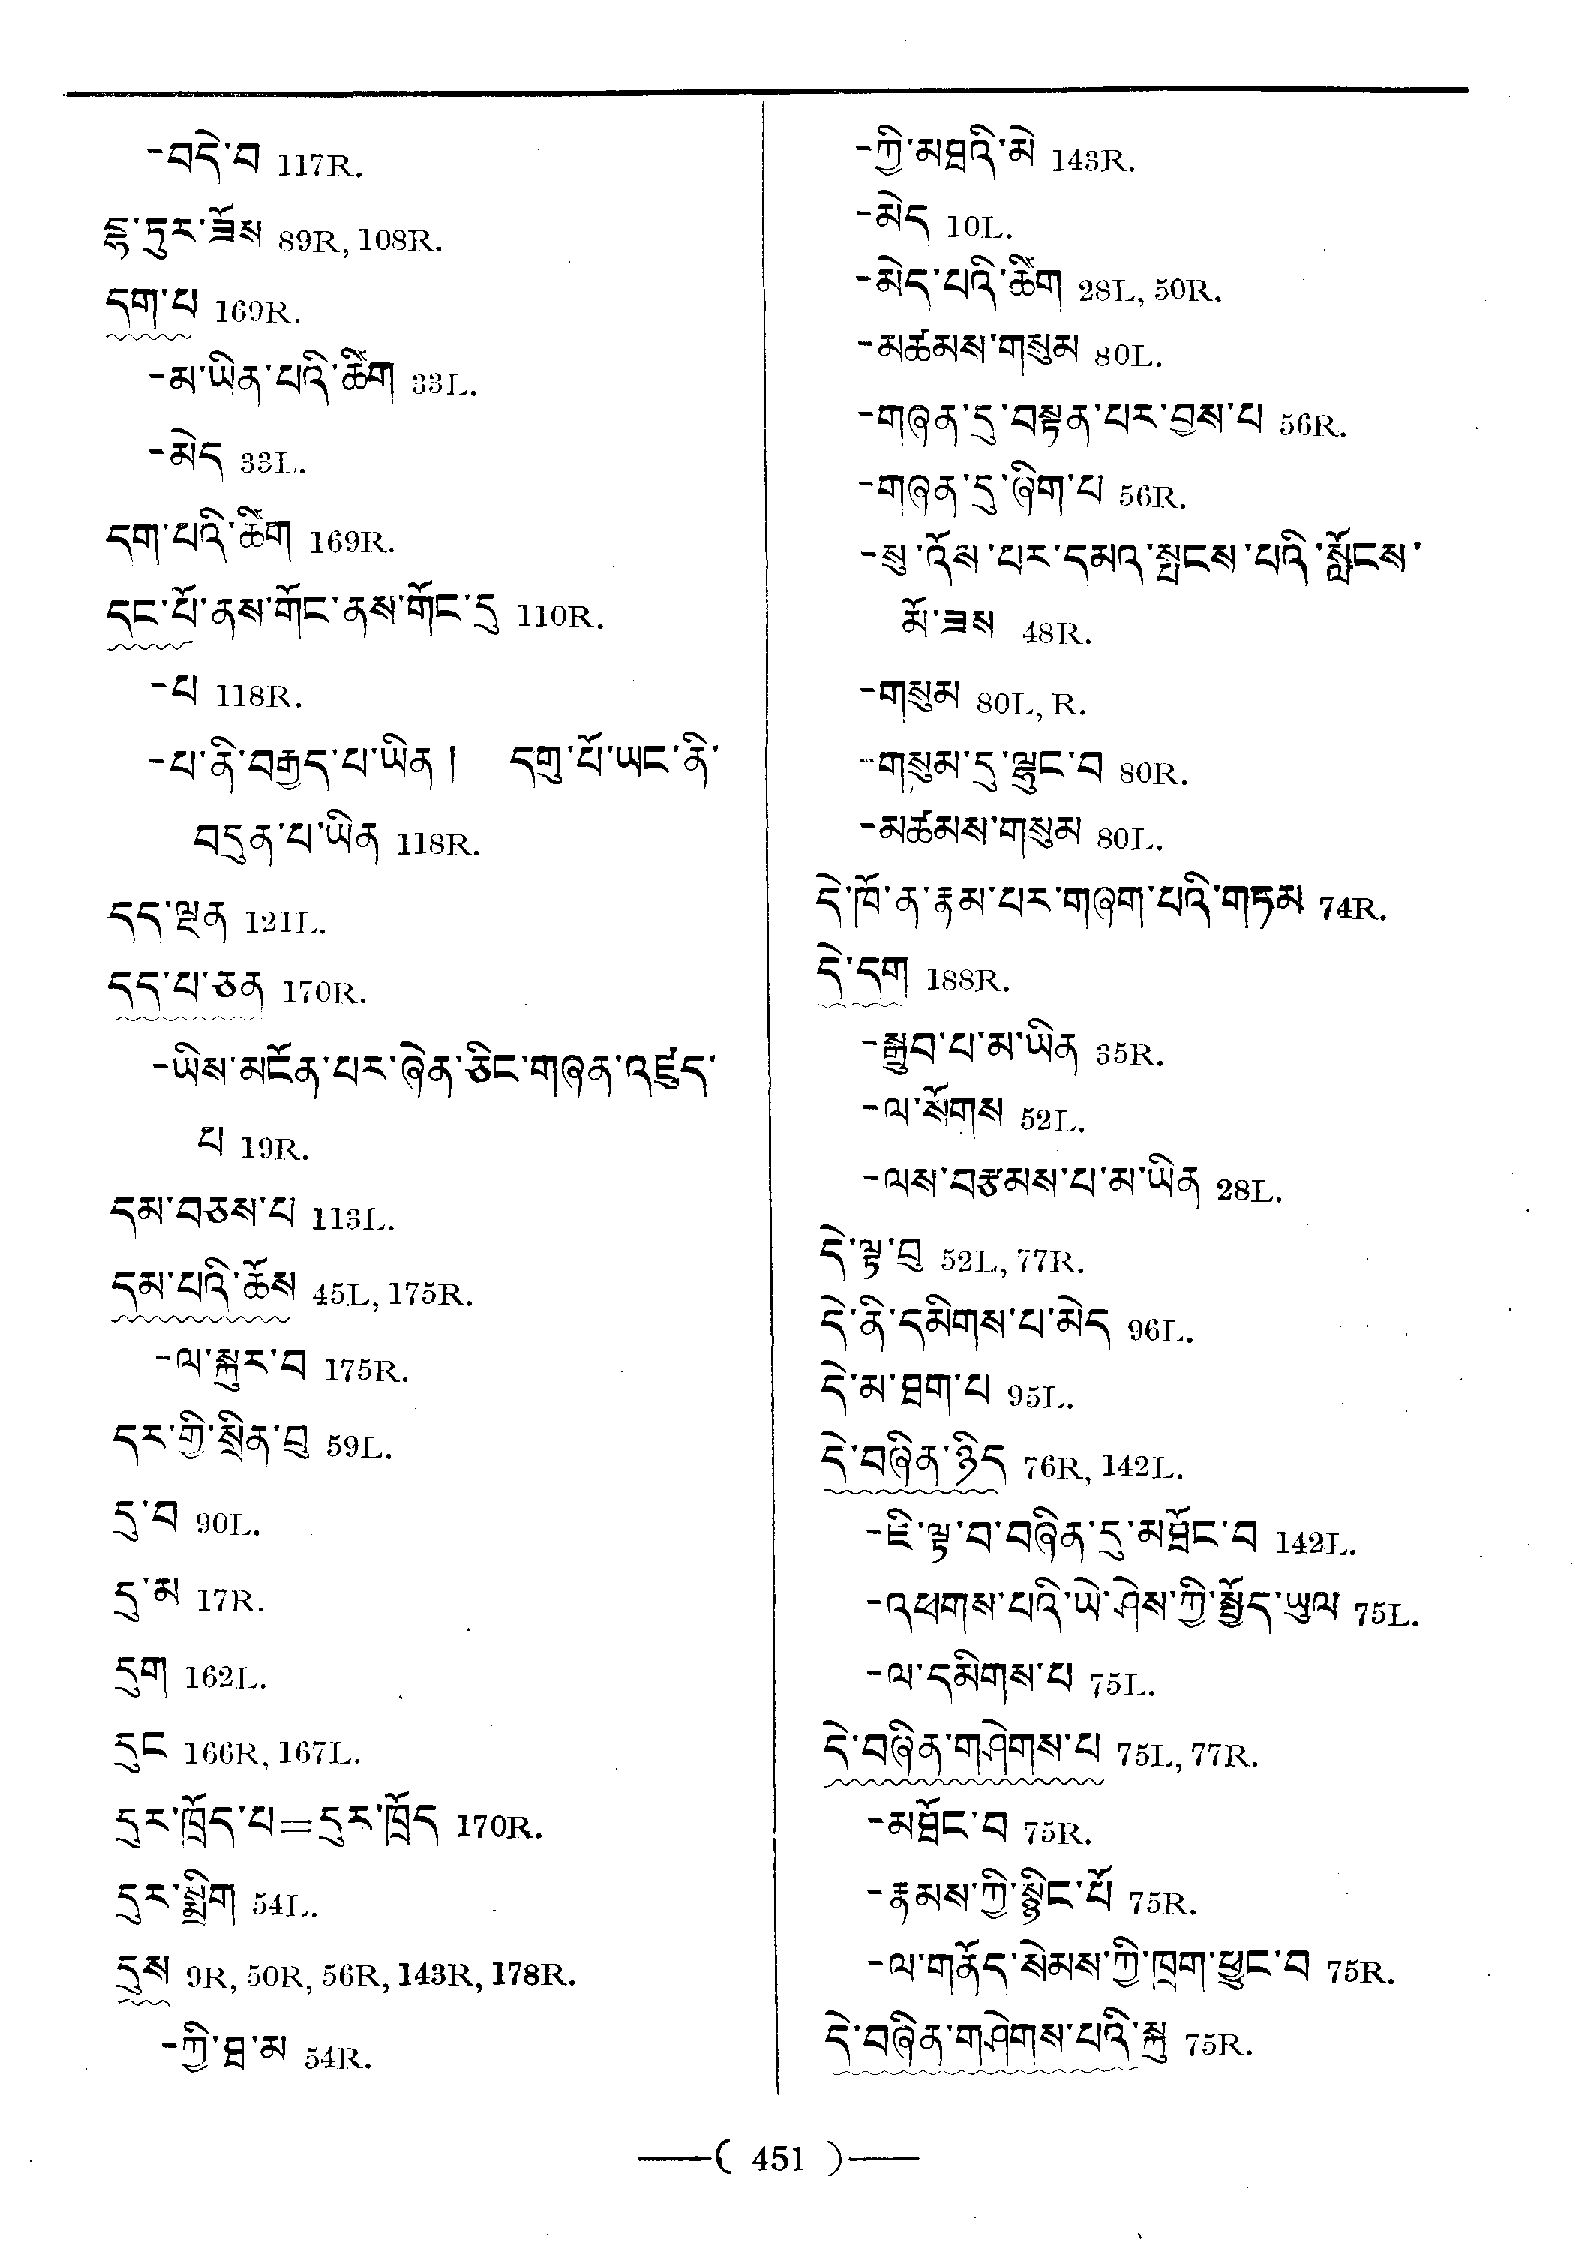 -བདེ་བ 117R.
དྷ་དུར་ཟོས 89R, 108R.
དག་པ 169R.
-མ་ཡིན་པའི་ཚིག 33L.
-མེད 33L.
དག་པའི་ཚིག 169R.
དང་པོ་ནས་གོང་ནས་གོང་དུ 110R.
-པ 118R.
-པ་ནི་བརྒྱད་པ་ཡིན། དགུ་པོ་ཡང་ནི་
བདུན་པ་ཡིན 118R.
དད་ལྡན 121L.
དད་པ་ཅན 170R.
-ཡིས་མངོན་པར་ཞེན་ཅིང་གཞན་འཛུད་
པ 19R.
དམ་བཅས་པ 113L.
དམ་པའི་ཆོས 45L, 175R.
-ལ་སྐུར་བ 175R.
དར་གྱི་སྲིན་བུ 59L.
དུ་བ 90L.
དུ་མ 17R.
དུག 162L.
དུང 166R, 167L.
དུར་ཁྲོད་པ=དུར་ཁྲོད 170R.
དུར་སྨྲིག 54L.
དུས 9R, 50R, 56R, 143R, 178R.
-ཀྱི་ཐ་མ 54R.
-ཀྱི་མཐའི་མེ 143R.
-མེད 10L.
-མེད་པའི་ཚིག 28L, 50R.
-མཚམས་གསུམ 80L.
-གཞན་དུ་བསྟན་པར་བྱས་པ 56R.
-གཞན་དུ་ཞིག་པ 56R.
-སུ་འོས་པར་དམའ་སྤངས་པའི་སློངས་
མོ་ཟས 48R.
-གསུམ 80L, R.
-གསུམ་དུ་ལྷུང་བ 80R.
-མཚམས་གསུམ 80L.
དེ་ཁོ་ན་རྣམ་པར་གཞག་པའི་གཏམ 74R.
དེ་དག 188R.
-སྒྲུབ་པ་མ་ཡིན 35R.
-ལ་སོགས 52L.
-ལས་བརྩམས་པ་མ་ཡིན 28L.
དེ་ལྟ་བུ 52L, 77R.
དེ་ནི་དམིགས་པ་མེད 96L.
དེ་མ་ཐག་པ 95L.
དེ་བཞིན་ཉིད 76R, 142L.
-ཇི་ལྟ་བ་བཞིན་དུ་མཐོང་བ 142L.
-འཕགས་པའི་ཡེ་ཤེས་ཀྱི་སྤྱོད་ཡུལ 75L.
-ལ་དམིགས་པ 75L.
དེ་བཞིན་གཤེགས་པ 75L, 77R.
-མཐོང་བ 75R.
-རྣམས་ཀྱི་སྙིང་པོ 75R.
-ལ་གནོད་སེམས་ཀྱི་ཁྲག་ཕྱུང་བ 75R.
དེ་བཞིན་གཤེགས་པའི་སྐུ 75R.
—( 451 )—